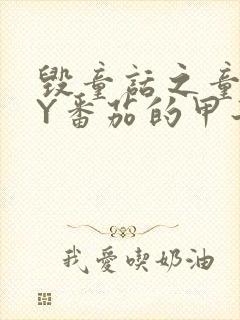 毁童话之童
Y番茄的甲
我愛喫奶油